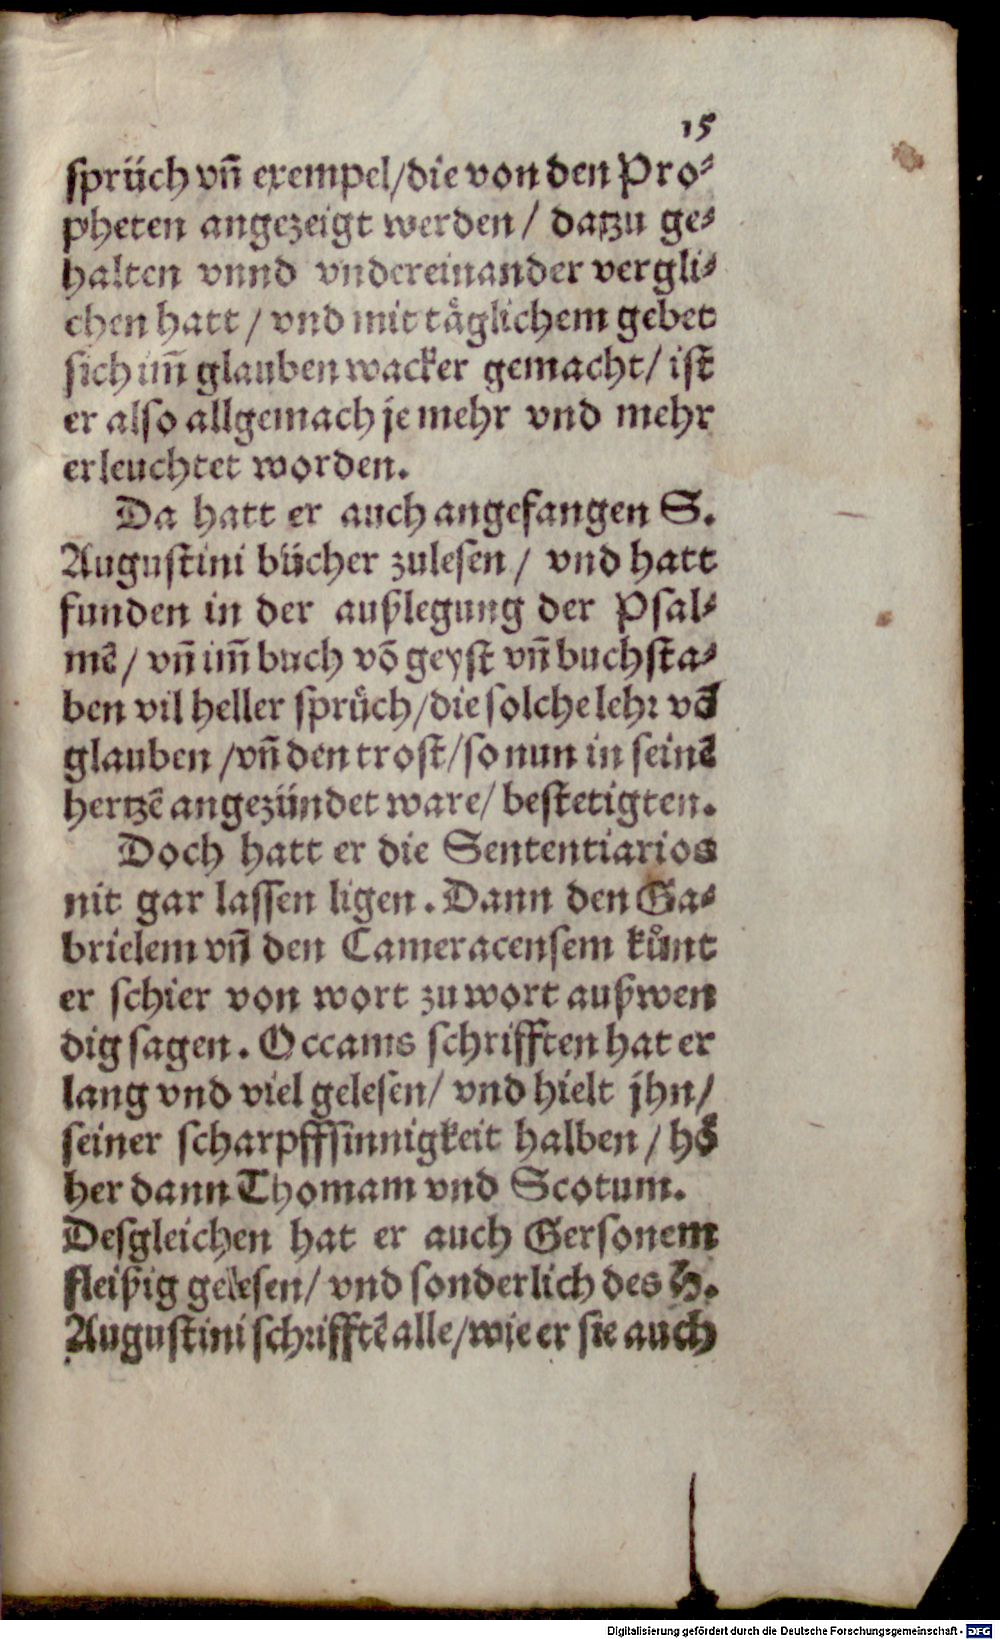 15
sprüch vñ exempel/die von den Pro⸗
pheten angezeigt werden/ datzu ge⸗
halten vnnd vndereinander vergli⸗
chen hatt/ vnd mit täglichem gebet
sich im̃ glauben wacker gemacht/ ist
er also allgemach je mehr vnd mehr
erleuchtet worden.
Da hatt er auch angefangen S.
Augustini bücher zulesen/ vnd hatt
funden in der außlegung der Psal⸗
mẽ/ vñ im̃ buch võ geyst vñ buchsta⸗
ben vil heller sprüch/die solche lehr võ
glauben/vñ den trost/so nun in seinẽ
hertzẽ angezündet ware/ bestetigten.
Doch hatt er die Sententiarios
nit gar lassen ligen. Dann den Ga⸗
brielem vñ den Cameracensem kůnt
er schier von wort zu wort außwen
dig sagen. Occams schrifften hat er
lang vnd viel gelesen/ vnd hielt jhn/
seiner scharpffsinnigkeit halben/ hö
her dann Thomam vnd Scotum.
Desgleichen hat er auch Gersonem
fleißig gelesen/ vnd sonderlich des H.
Augustini schrifftẽ alle/wie er sie auch
Digitalisierung gefördert durch die Deutsche Forschungsgemeinschaft - DFG